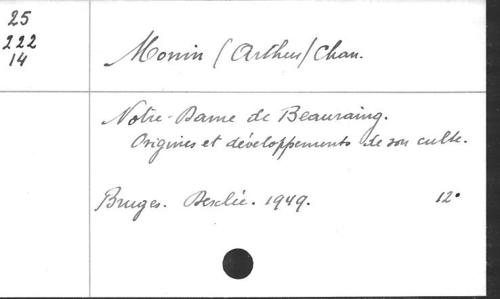 25
222
14
Monin (Arthur) Chan.
Notre-Dame de Beauraing.
Origines et développements de son culte.
Bruges. Desclée. 1949. 12°